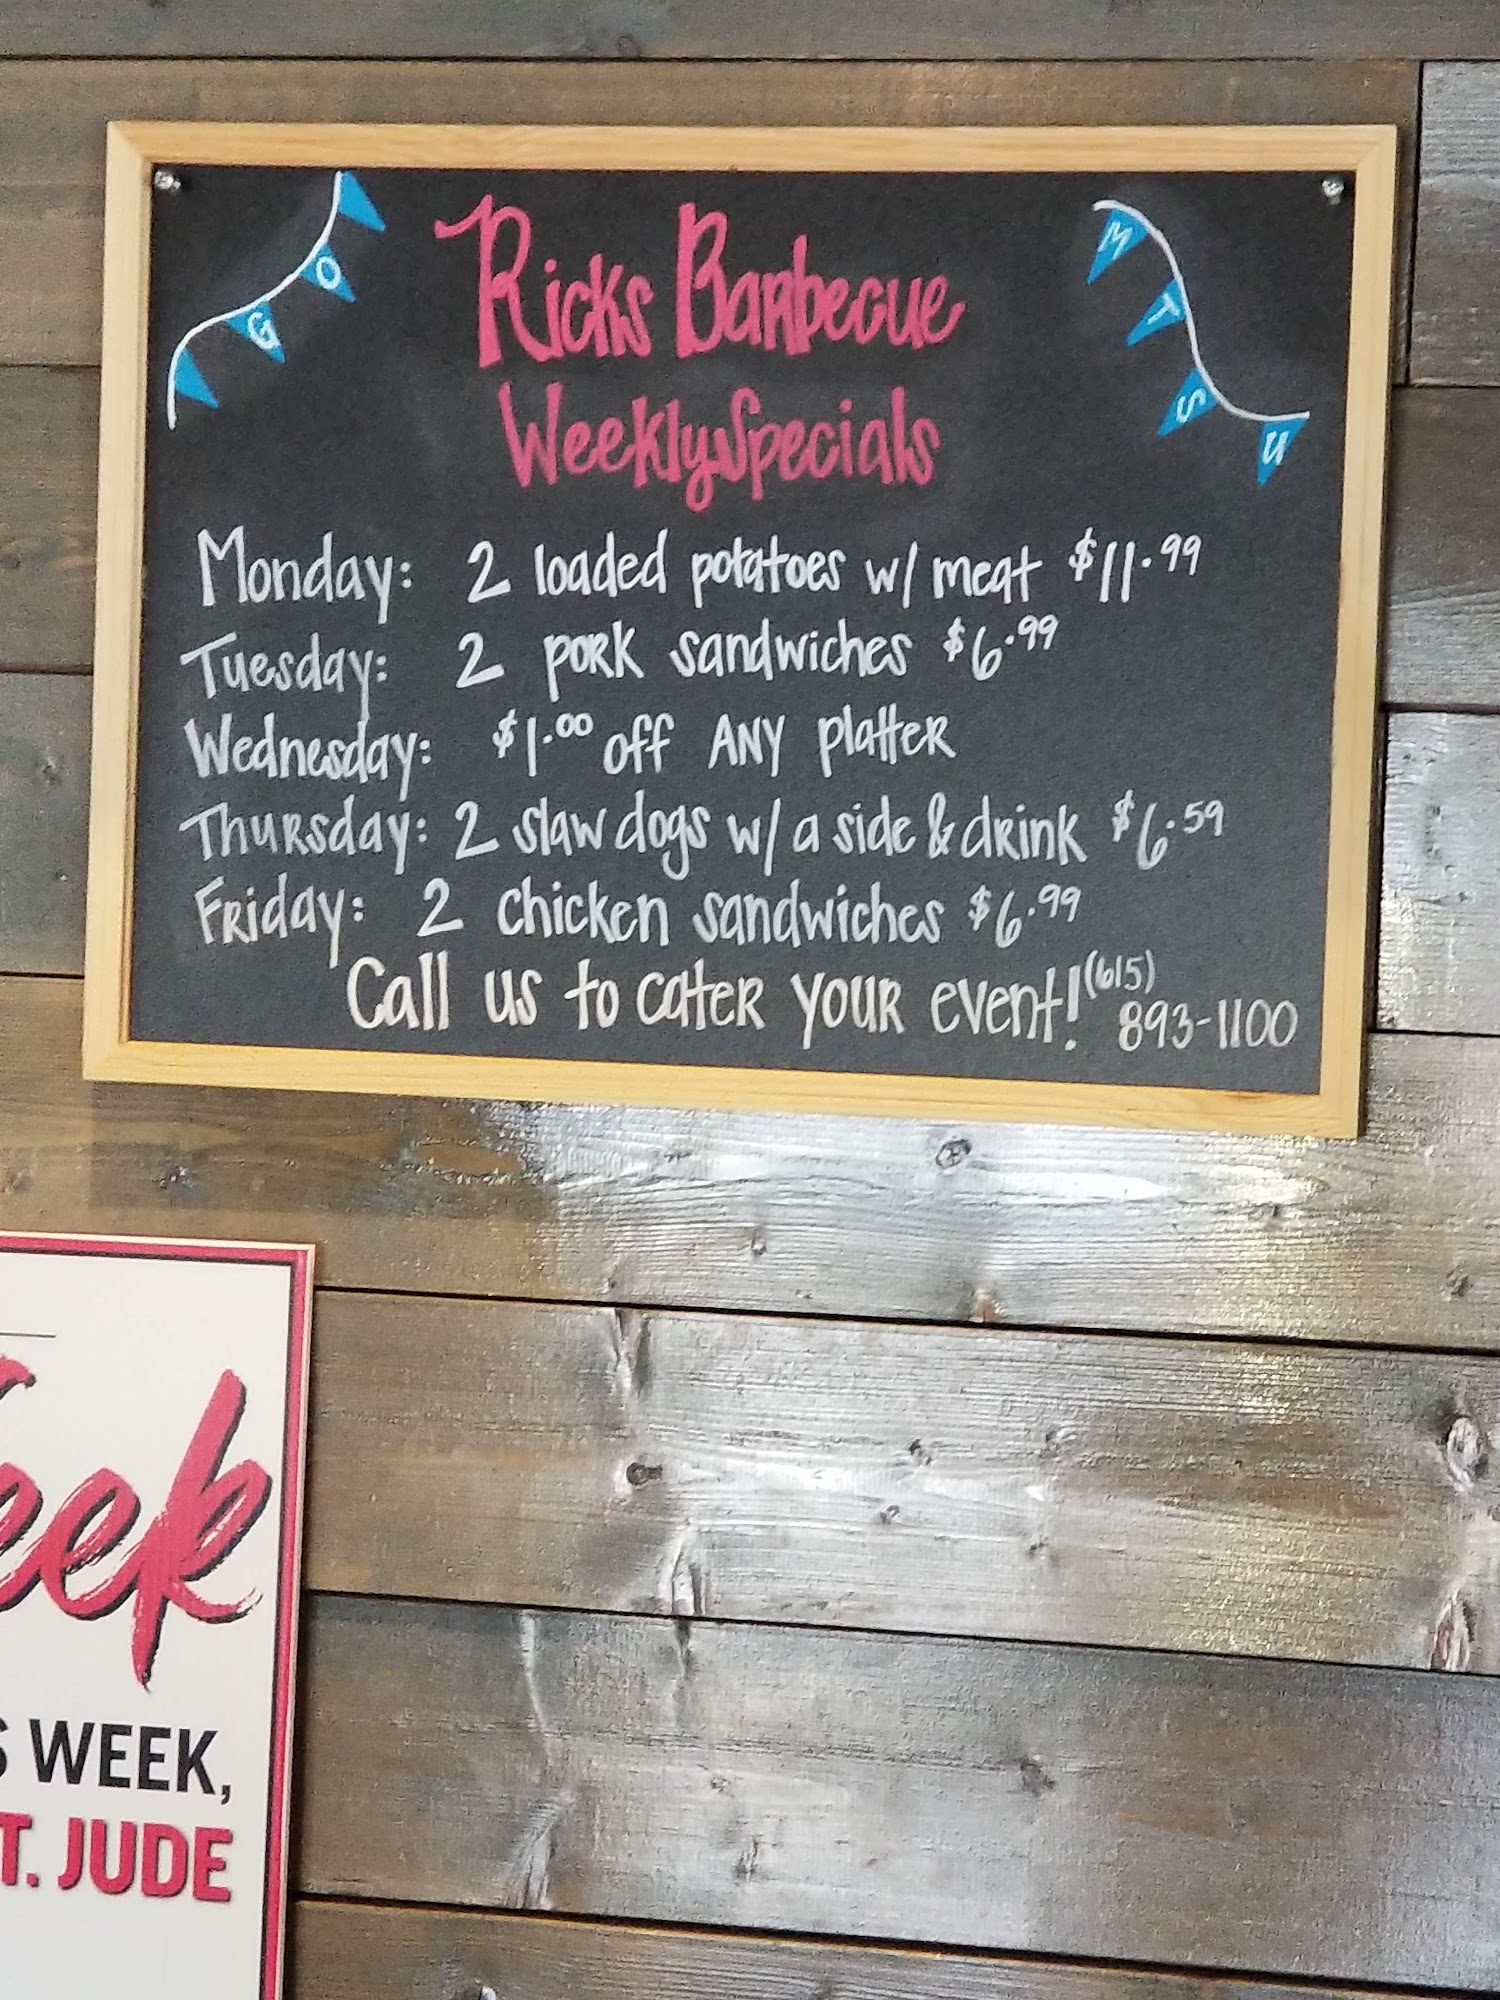 GO
MTSU
Ricks Barbecue
Weekly Specials
Monday: 2 loaded potatoes w/ meat $11.99
Tuesday: 2 pork sandwiches $6.99
Wednesday: $1.00 off ANY platter
Thursday: 2 slaw dogs w/ a side & drink $6.59
Friday: 2 chicken sandwiches $6.99
Call us to cater your event! (615)
893-1100
eek
S WEEK,
T. JUDE